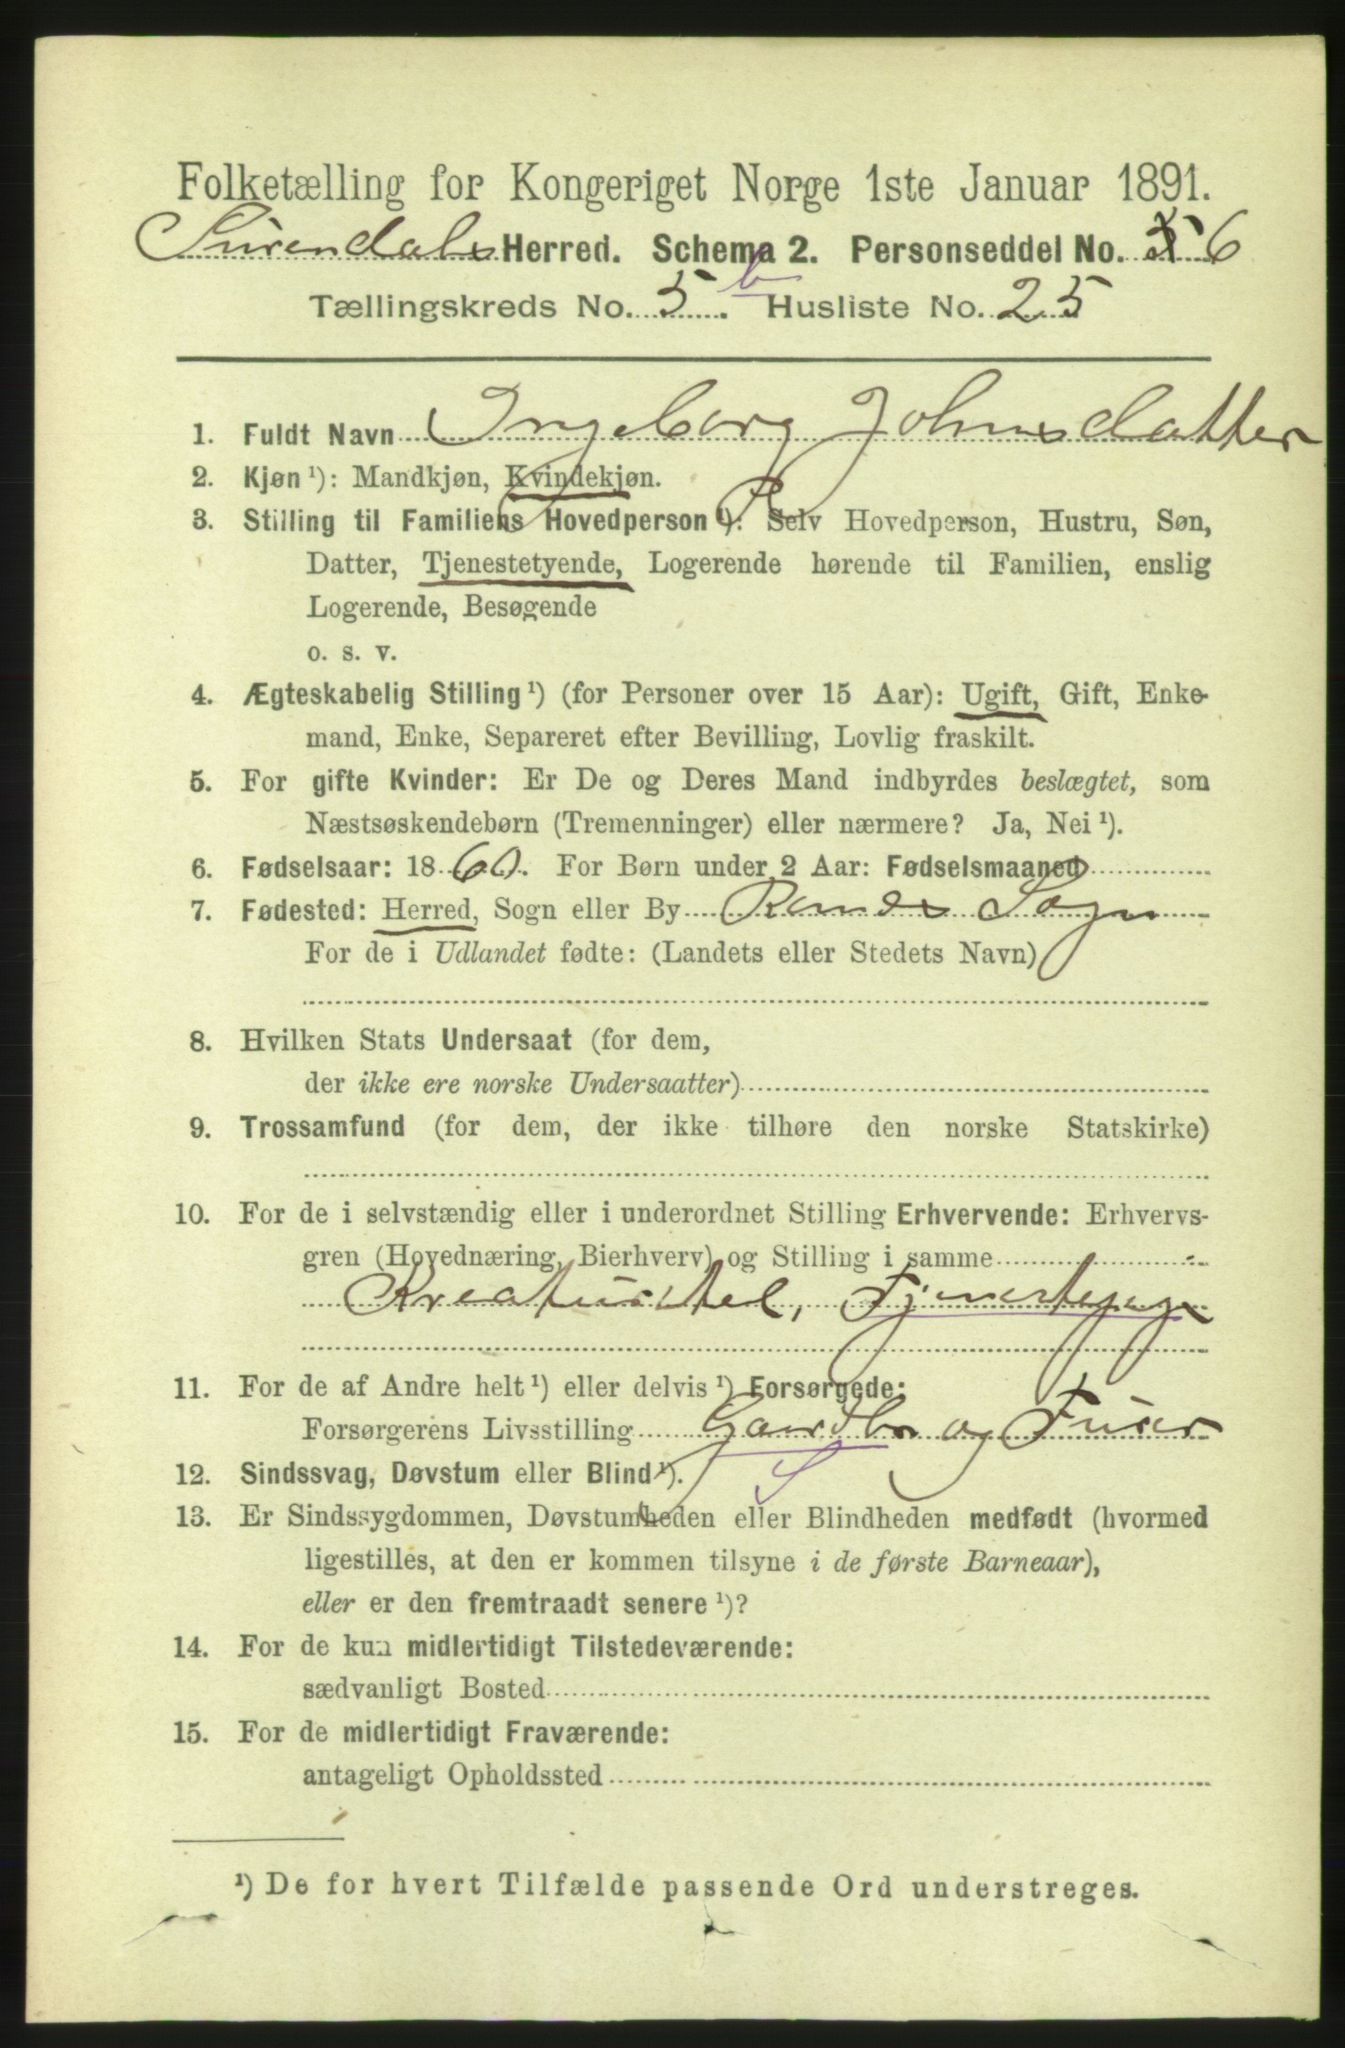 Folketælling for Kongeriget Norge 1ste Januar 1891.
Surendals Herred. Schema 2. Personseddel No. 5 6
Tællingskreds No. 5 b Husliste No. 25
1. Fuldt Navn Ingeborg Johnsdatter
2. Kjøn ¹): Mandkjøn, Kvindekjøn.
3. Stilling til Familiens Hovedperson ¹): Selv Hovedperson, Hustru, Søn,
Datter, Tjenestetyende, Logerende hørende til Familien, enslig
Logerende, Besøgende
o. s. v.
4. Ægteskabelig Stilling ¹) (for Personer over 15 Aar): Ugift, Gift, Enke-
mand, Enke, Separeret efter Bevilling, Lovlig fraskilt.
5. For gifte Kvinder: Er De og Deres Mand indbyrdes beslægtet, som
Næstsøskendebørn (Tremenninger) eller nærmere? Ja, Nei ¹).
6. Fødselsaar: 1860. For Børn under 2 Aar: Fødselsmaaned
7. Fødested: Herred, Sogn eller By Ranes Sogn
For de i Udlandet fødte: (Landets eller Stedets Navn)
8. Hvilken Stats Undersaat (for dem,
der ikke ere norske Undersaatter)
9. Trossamfund (for dem, der ikke tilhøre den norske Statskirke)
10. For de i selvstændig eller i underordnet Stilling Erhvervende: Erhvervs-
gren (Hovednæring, Bierhverv) og Stilling i samme
Kreaturstel,
11. For de af Andre helt ¹) eller delvis ¹) Forsørgede:
Forsørgerens Livsstilling Gaardbr og
12. Sindssvag, Døvstum eller Blind ¹). S
13. Er Sindssygdommen, Døvstumheden eller Blindheden medfødt (hvormed
ligestilles, at den er kommen tilsyne i de første Barneaar),
eller er den fremtraadt senere ¹)?
14. For de kun midlertidigt Tilstedeværende:
sædvanligt Bosted
15. For de midlertidigt Fraværende:
antageligt Opholdssted
¹) De for hvert Tilfælde passende Ord understreges.